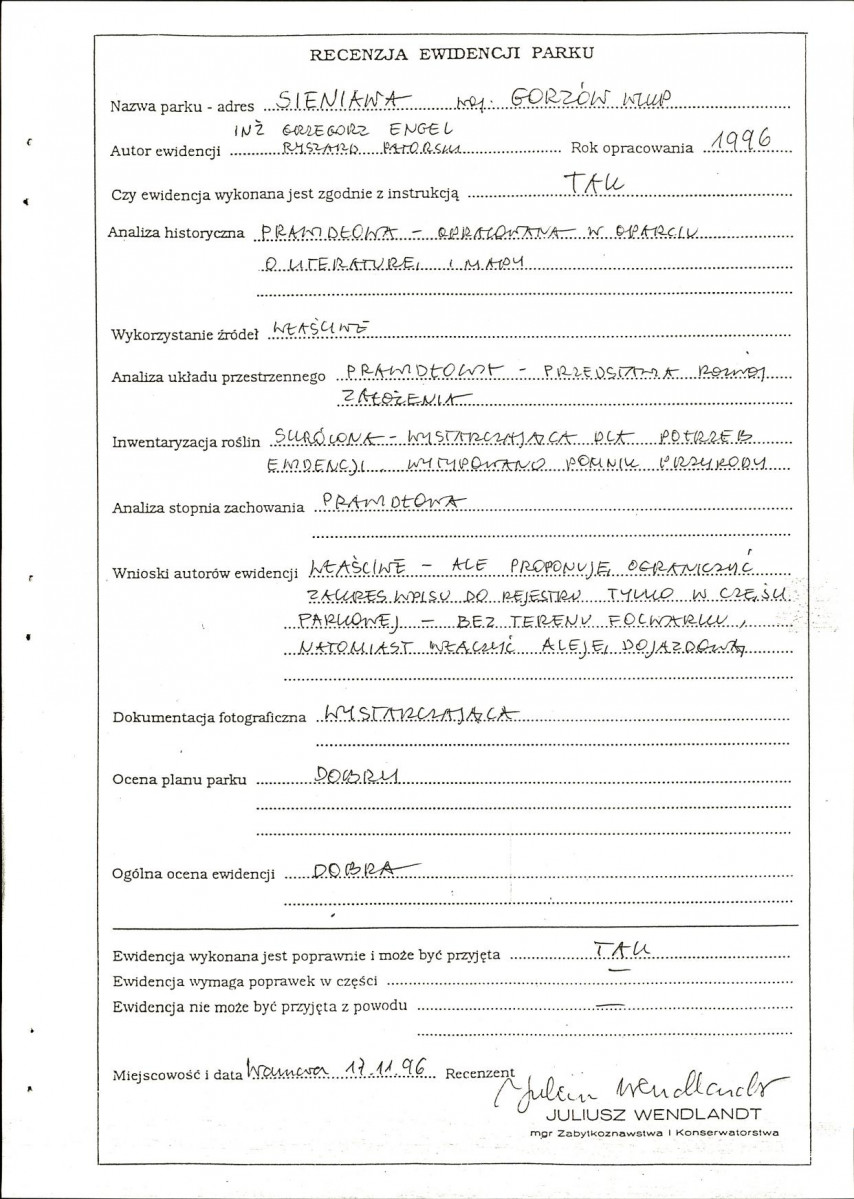 RECENZJA EWIDENCJI PARKU
Nazwa parku - adres SIENIAWA woj. GORZÓW WLKP
INŻ GRZEGORZ ENGEL
Autor ewidencji RYSZARD Rok opracowania 1996
Czy ewidencja wykonana jest zgodnie z instrukcją TAK
Analiza historyczna PRAWIDŁOWA - OPRACOWANA W OPARCIU
O LITERATURĘ I MAPY
Wykorzystanie źródeł WŁAŚCIWE
Analiza układu przestrzennego PRAWIDŁOWA - PRZEDSTAWIA ROZWÓJ
ZAŁOŻENIA
Inwentaryzacja roślin SKRÓCONA - WYSTARCZAJĄCA DLA POTRZEB
EWIDENCJI, WYTYPOWANO POMNIK PRZYRODY
Analiza stopnia zachowania PRAWIDŁOWA
Wnioski autorów ewidencji WŁAŚCIWE - ALE PROPONUJĘ OGRANICZYĆ
ZAKRES WPISU DO REJESTRU TYLKO W CZĘŚCI
PARKOWEJ - BEZ TERENU FOLWARKU,
NATOMIAST WŁĄCZYĆ ALEJĘ DOJAZDOWĄ
Dokumentacja fotograficzna WYSTARCZAJĄCA
Ocena planu parku DOBRY
Ogólna ocena ewidencji DOBRA
Ewidencja wykonana jest poprawnie i może być przyjęta TAK
Ewidencja wymaga poprawek w części —
Ewidencja nie może być przyjęta z powodu —
Miejscowość i data Warszawa 17.11.96 Recenzent Juliusz Wendlandt
JULIUSZ WENDLANDT
mgr Zabytkoznawstwa i Konserwatorstwa